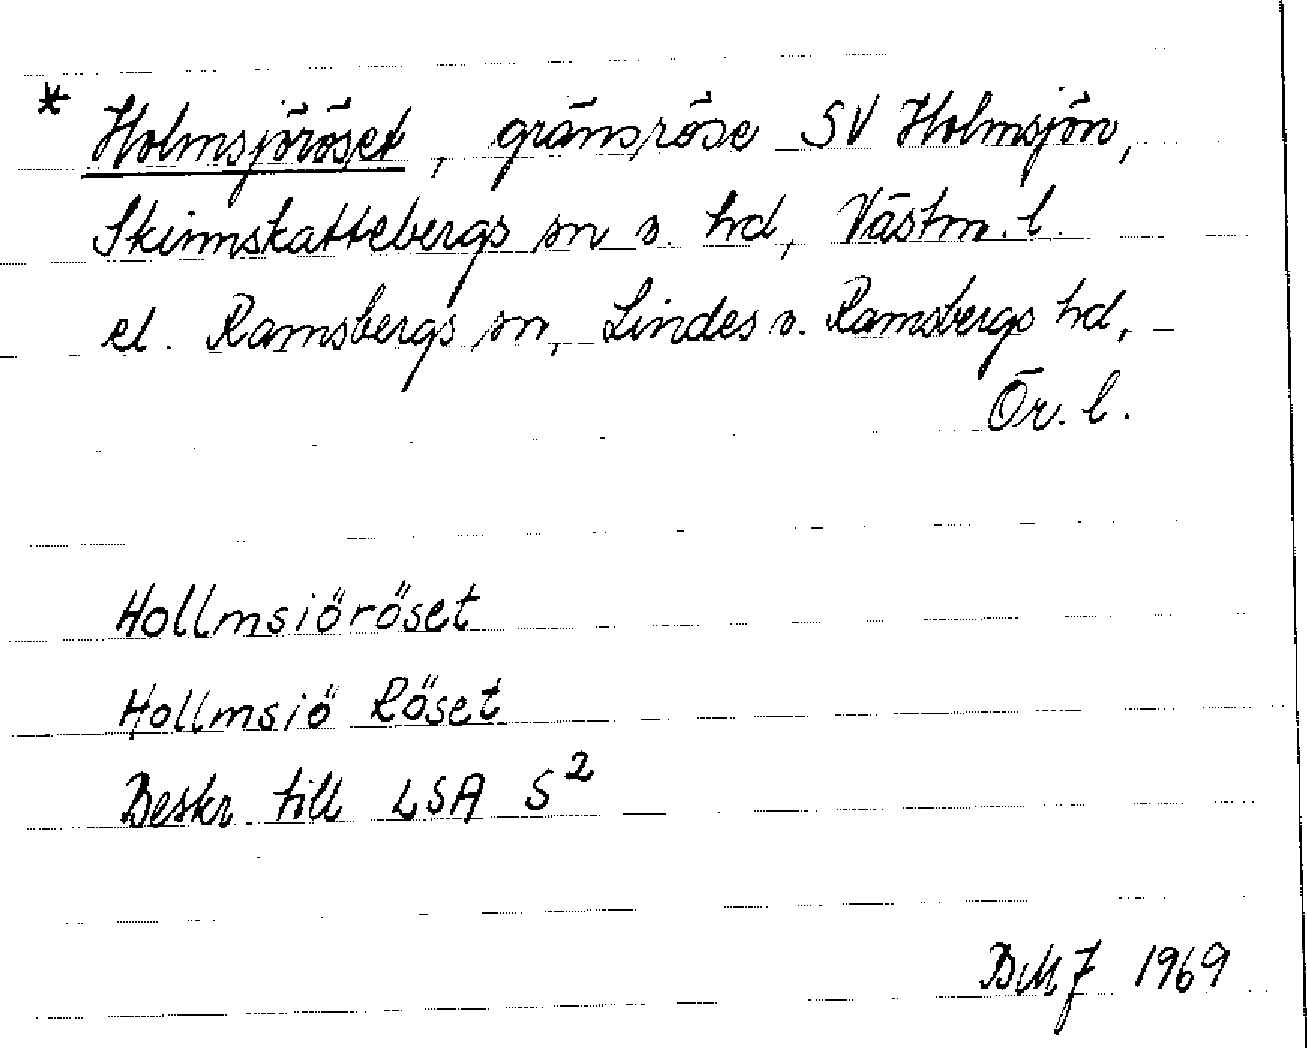 * Holmsjöröset, gränsröse SV Holmsjön,
Skinnskattebergs sn o. hd, Västm. l.
el. Ramsbergs sn, Lindes o. Ramsbergs hd,
Ör. l.
Hollmsiöröset
Hollmsiö Röset
Beskr till LSA S²
BMJ 1969